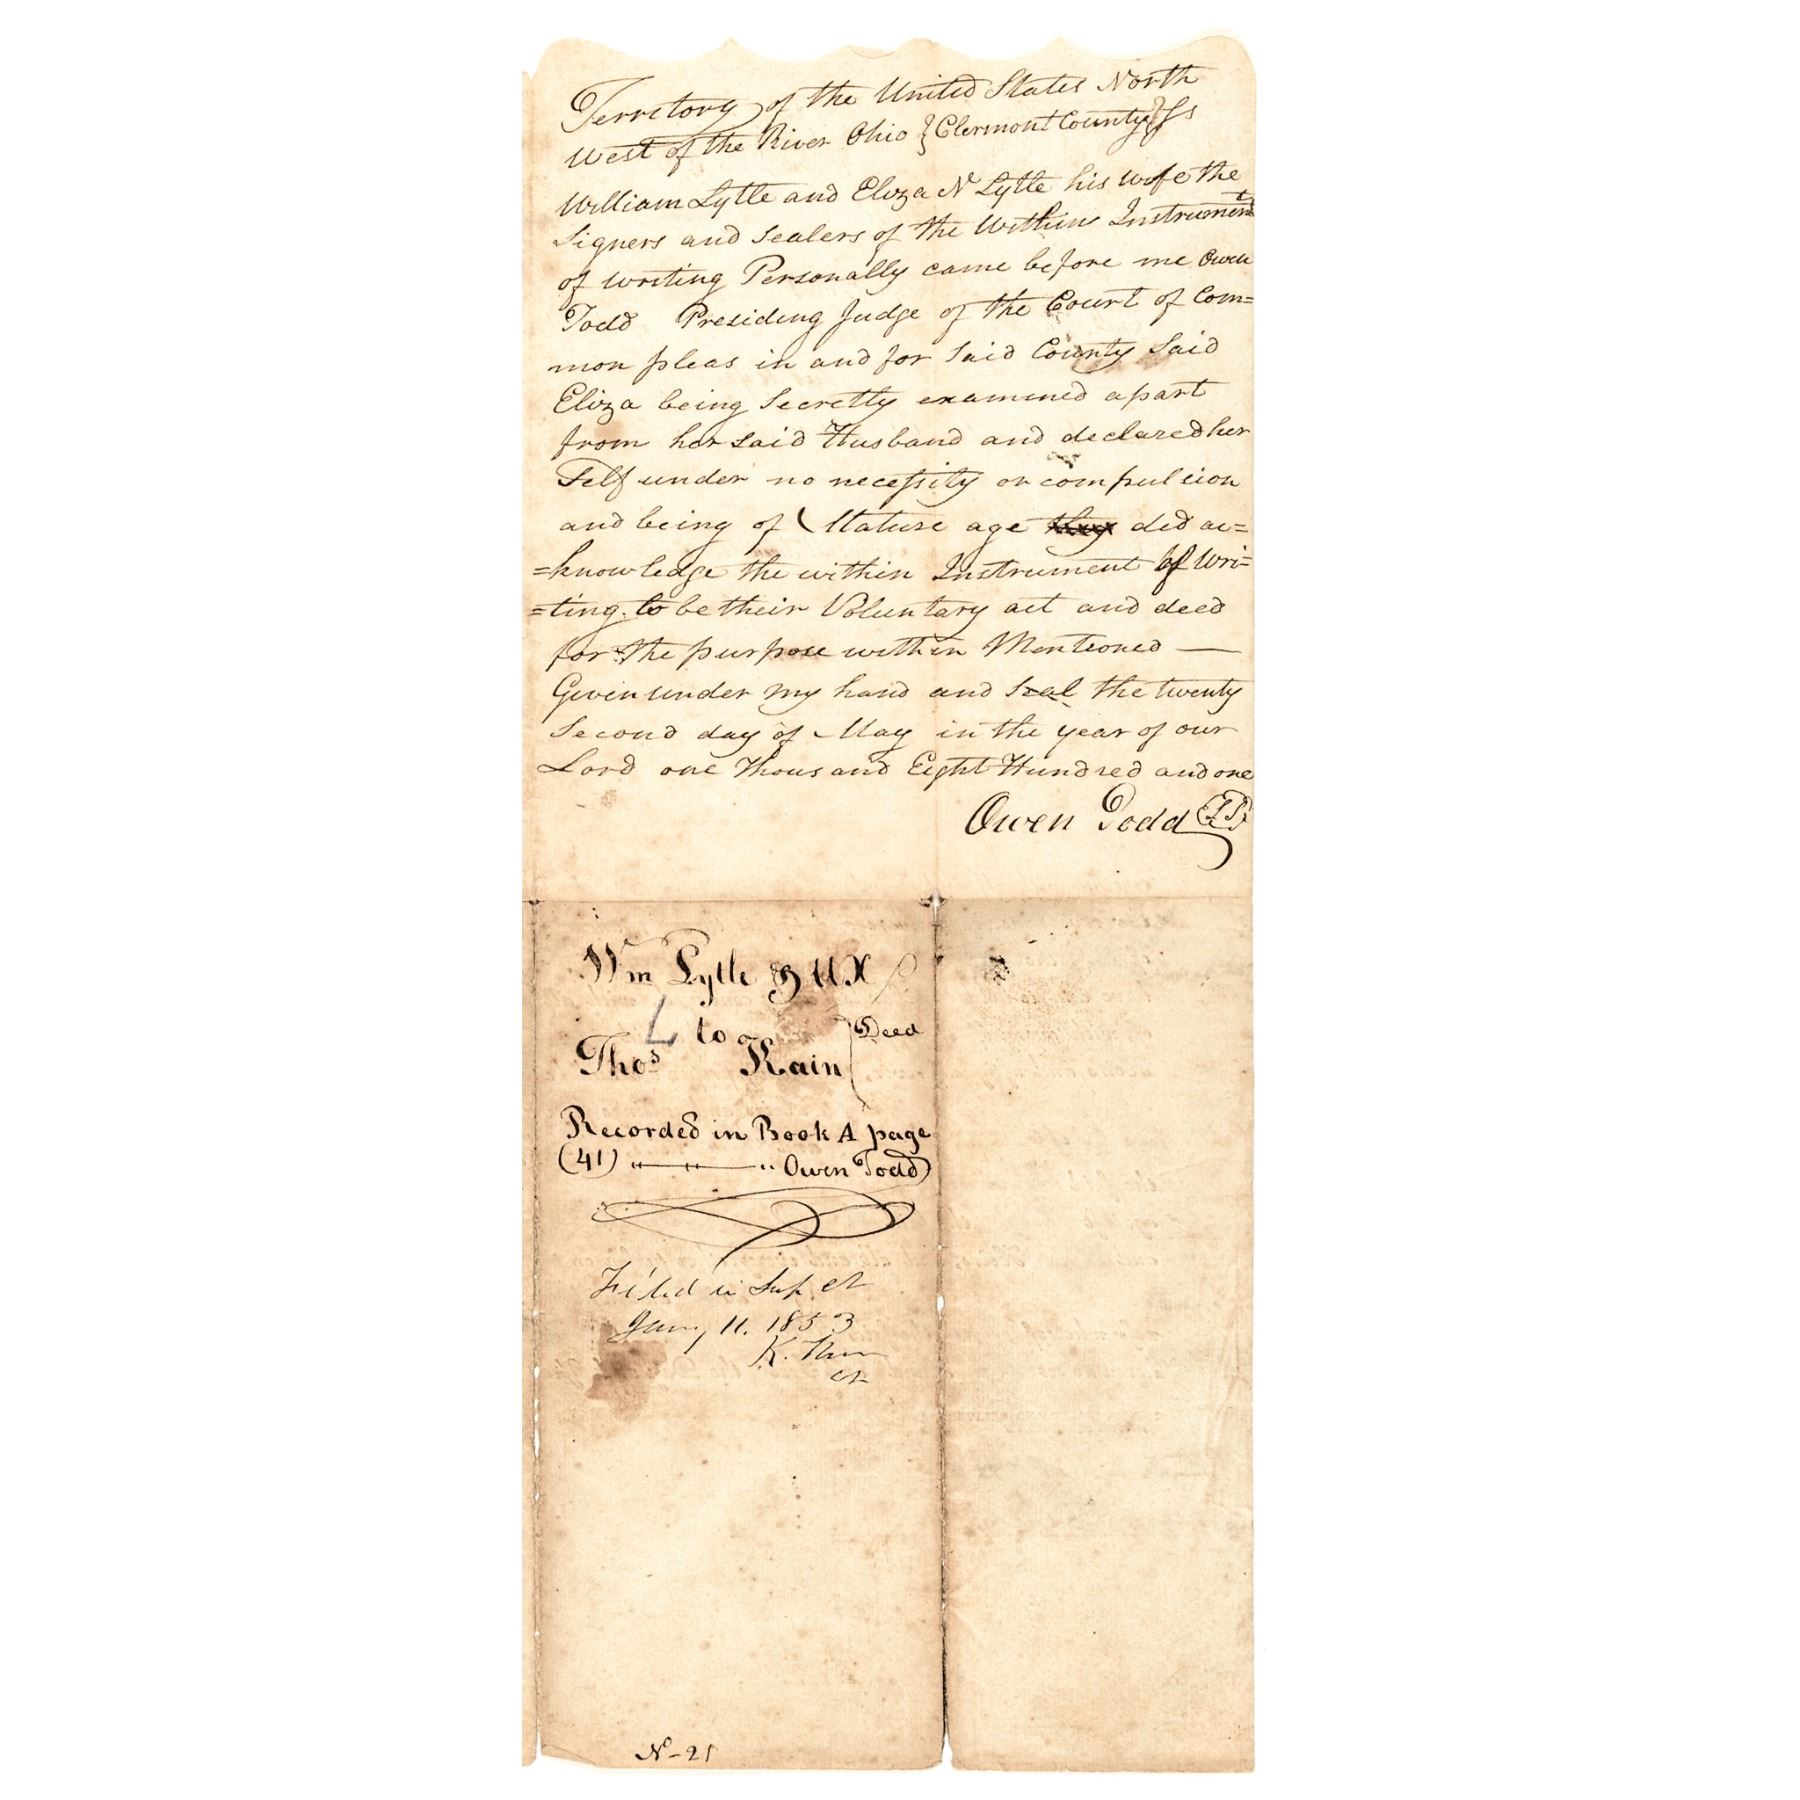 Territory of the United States North
West of the River Ohio } Clermont County } Ss
William Lytle and Eliza N Lytle his wife the
Signers and Sealers of the Within Instrument
of writing Personally came before me Owen
Todd Presiding Judge of the Court of Com=
mon pleas in and for Said County Said
Eliza being Secretly examined apart
from her said Husband and declared her
Self under no necessity or compulsion
and being of Mature age they did ac=
=knowledge the within Instrument of Wri=
=ting to be their Voluntary act and deed
for the purpose within Mentioned —
Given under my hand and seal the twenty
Second day of May in the year of our
Lord one Thousand Eight Hundred and one
Owen Todd LS
Wm Lytle & UX
L to } Deed
Thos Kain
Recorded in Book A page
(41) Owen Todd
Filed in Sup Ct
Jany 11. 1853
K.
Clk
No - 21